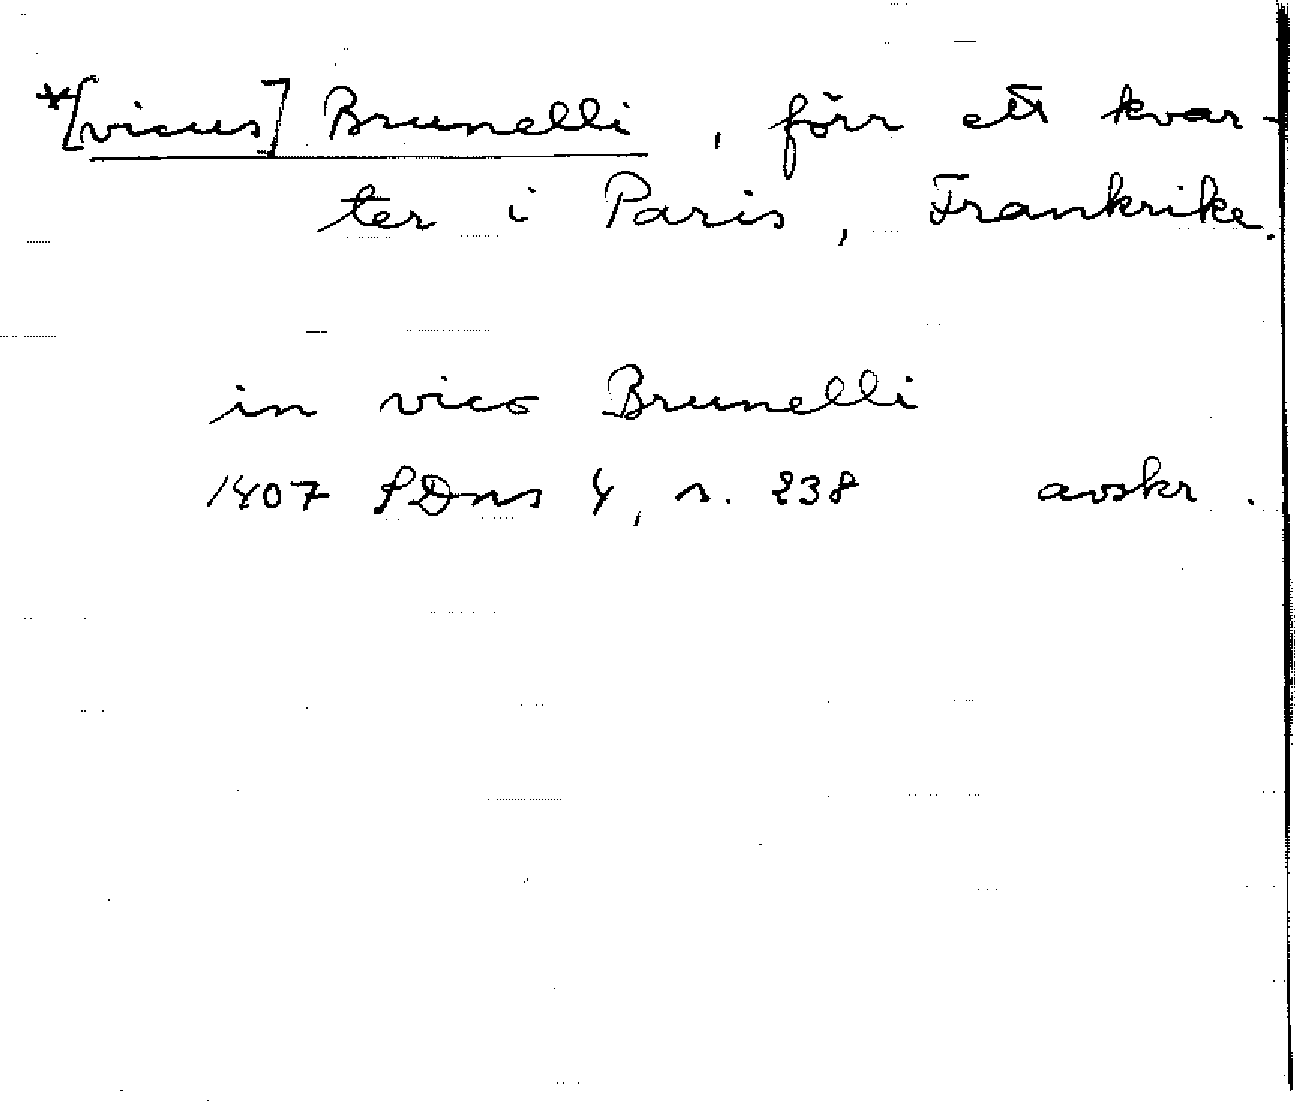 *[vicus] Brunelli, förr ett kvar-
ter i Paris, Frankrike.
in vico Brunelli
1407 SDns 4, s. 238 avskr.